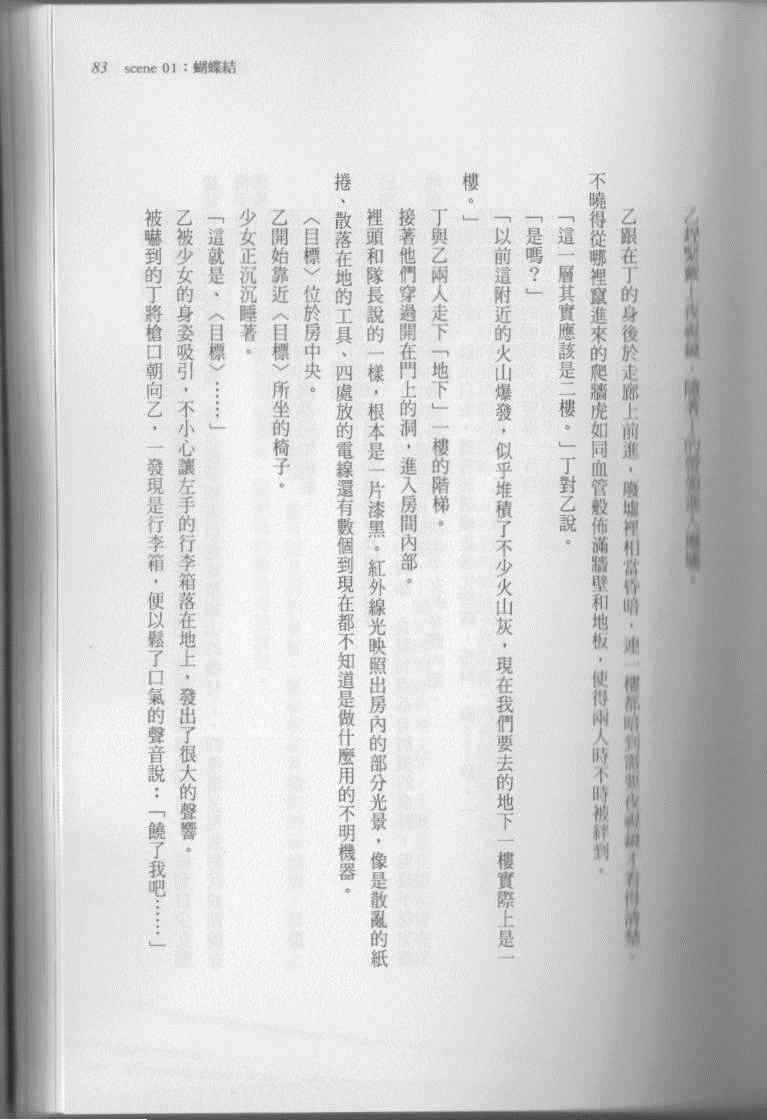 83 scene 01：蝴蝶結
乙跟在丁的身後於走廊上前進，廢墟裡相當昏暗，連一樓都暗到需要夜視鏡才看得清楚。
不曉得從哪裡竄進來的爬牆虎如同血管般佈滿牆壁和地板，使得兩人時不時被絆到。
「這一層其實應該是二樓。」丁對乙說。
「是嗎？」
「以前這附近的火山爆發，似乎堆積了不少火山灰，現在我們要去的地下一樓實際上是一
樓。」
丁與乙兩人走下「地下」一樓的階梯。
接著他們穿過開在門上的洞，進入房間內部。
裡頭和隊長說的一樣，根本是一片漆黑。紅外線光映照出房內的部分光景，像是散亂的紙
捲、散落在地的工具、四處放的電線還有數個到現在都不知道是做什麼用的不明機器。
〈目標〉位於房中央。
乙開始靠近〈目標〉所坐的椅子。
少女正沉沉睡著。
「這就是、〈目標〉……」
乙被少女的身姿吸引，不小心讓左手的行李箱落在地上，發出了很大的聲響。
被嚇到的丁將槍口朝向乙，一發現是行李箱，便以鬆了口氣的聲音說：「饒了我吧……」